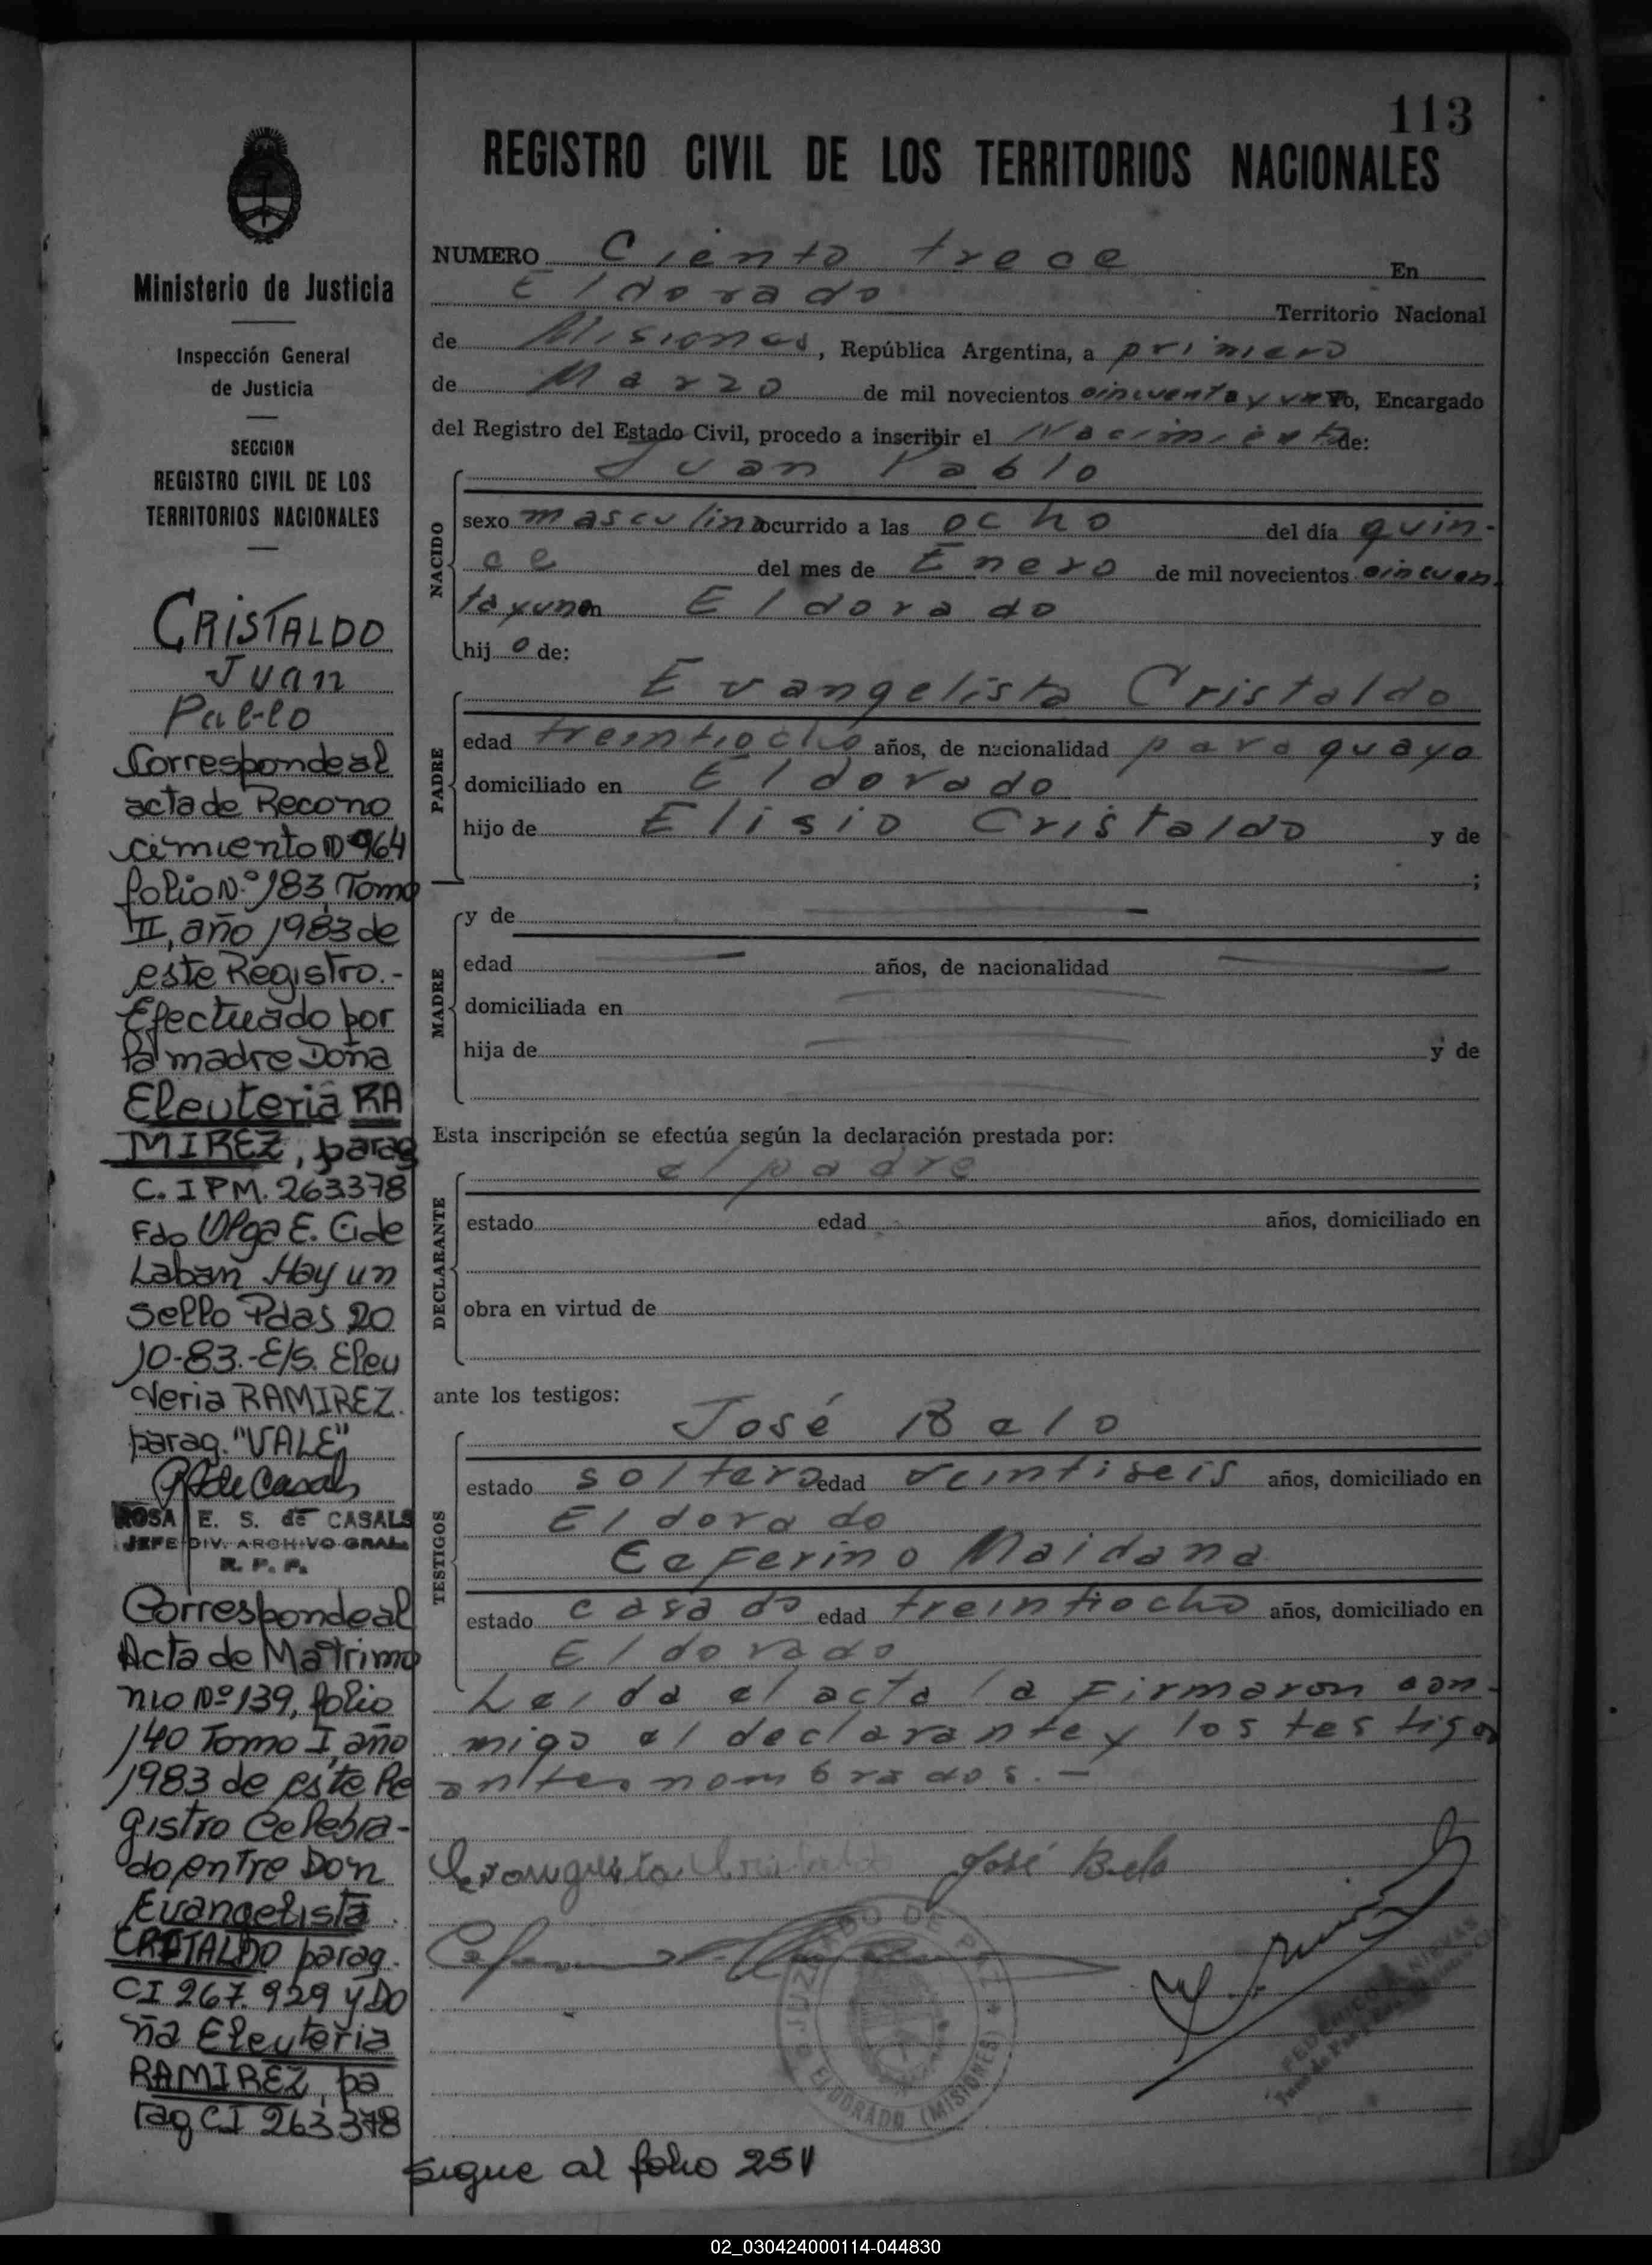 113
REGISTRO CIVIL DE LOS TERRITORIOS NACIONALES
Ministerio de Justicia
Inspección General
de Justicia
SECCION
REGISTRO CIVIL DE LOS
TERRITORIOS NACIONALES
CRISTALDO
Juan
Pablo
Correspondeal
acta de Recono
cimiento Nº 964
folio N.º 183, Tomo
II, año 1983 de
este Registro.-
Efectuado por
la madre Doña
Eleuteria RA
MIREZ, parag
C. I P M. 263378
Fdo Olga E. G. de
Labañ Hay un
Sello Pdas 20
10-83.-E/S. Eleu
teria RAMIREZ.
parag. "VALE"
R de Casals
ROSA E. S. de CASALS
JEFE DIV. ARCHIVO GRAL.
R. P. P.
Correspondeal
Acta de Matrimo
nio Nº 139, folio
140 Tomo I, año
1983 de este Re
gistro Celebra-
do entre Don
Evangelista
CRISTALDO parag.
CI 267.929 y Do
ña Eleuteria
RAMIREZ, pa
rag CI 263378
NUMERO Ciento trece En
Eldorado Territorio Nacional
de Misiones, República Argentina, a primero
de Marzo de mil novecientos cincuenta y uno Yo, Encargado
del Registro del Estado Civil, procedo a inscribir el Nacimiento de:
NACIDO
Juan Pablo
sexo masculino ocurrido a las ocho del día quin-
ce del mes de Enero de mil novecientos cincuen-
ta y uno en Eldorado
hij o de:
PADRE
Evangelista Cristaldo
edad treintiocho años, de nacionalidad paraguayo
domiciliado en Eldorado
hijo de Elisio Cristaldo y de
;
MADRE
y de
edad años, de nacionalidad
domiciliada en
hija de y de
Esta inscripción se efectúa según la declaración prestada por:
DECLARANTE
el padre
estado edad años, domiciliado en
obra en virtud de
ante los testigos:
TESTIGOS
José Belo
estado soltero edad veintiseis años, domiciliado en
Eldorado
Ceferino Maidana
estado casado edad treintiocho años, domiciliado en
Eldorado
Leida el acta la firmaron con-
migo el declarante y los testigos
antes nombrados. —
Evangelista Cristaldo José Belo
JUZGADO DE PAZ
ELDORADO (MISIONES)
Sigue al folio 251
02_030424000114-044830